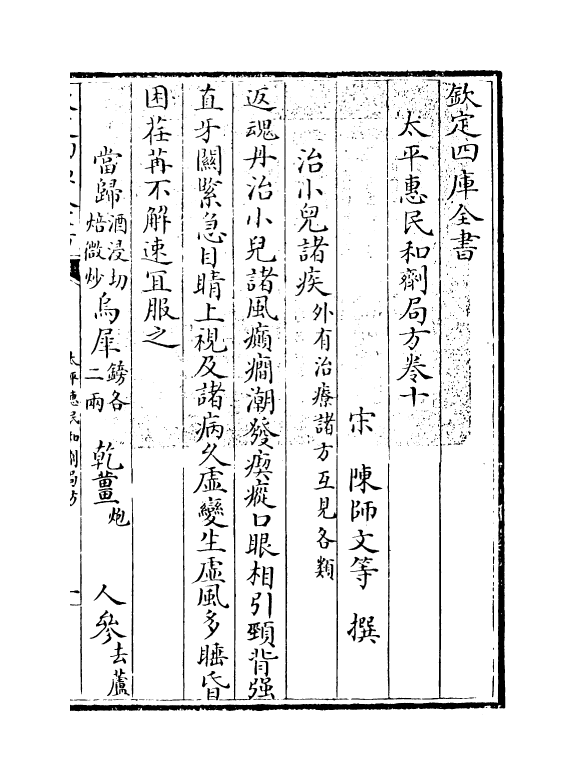 欽定四庫全書
太平惠民和劑局方卷十
宋 陳師文等 撰
治小兒諸疾外有治療諸方互見各類
返魂丹治小兒諸風癲癇潮發瘈瘲口眼相引頸背强
直牙關緊急目睛上視及諸病久虛變生虛風多睡昏
困荏苒不解速宜服之
當歸酒浸切焙微炒 烏犀鎊各二兩 乾薑炮 人參去蘆
太平惠民和劑局方 一